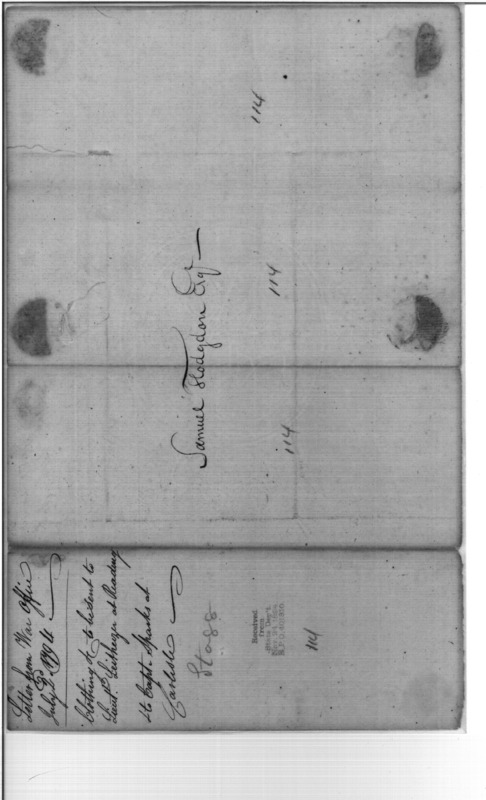 114
Samuel Hodgdon Esqr
114
114
Letter from War Office
July 2d 1794
Clothing &c to be sent to
Lieut. at Reading
& to Capt. Sparks at
Carlisle
Stagg
Received
from
State Dep't.
114